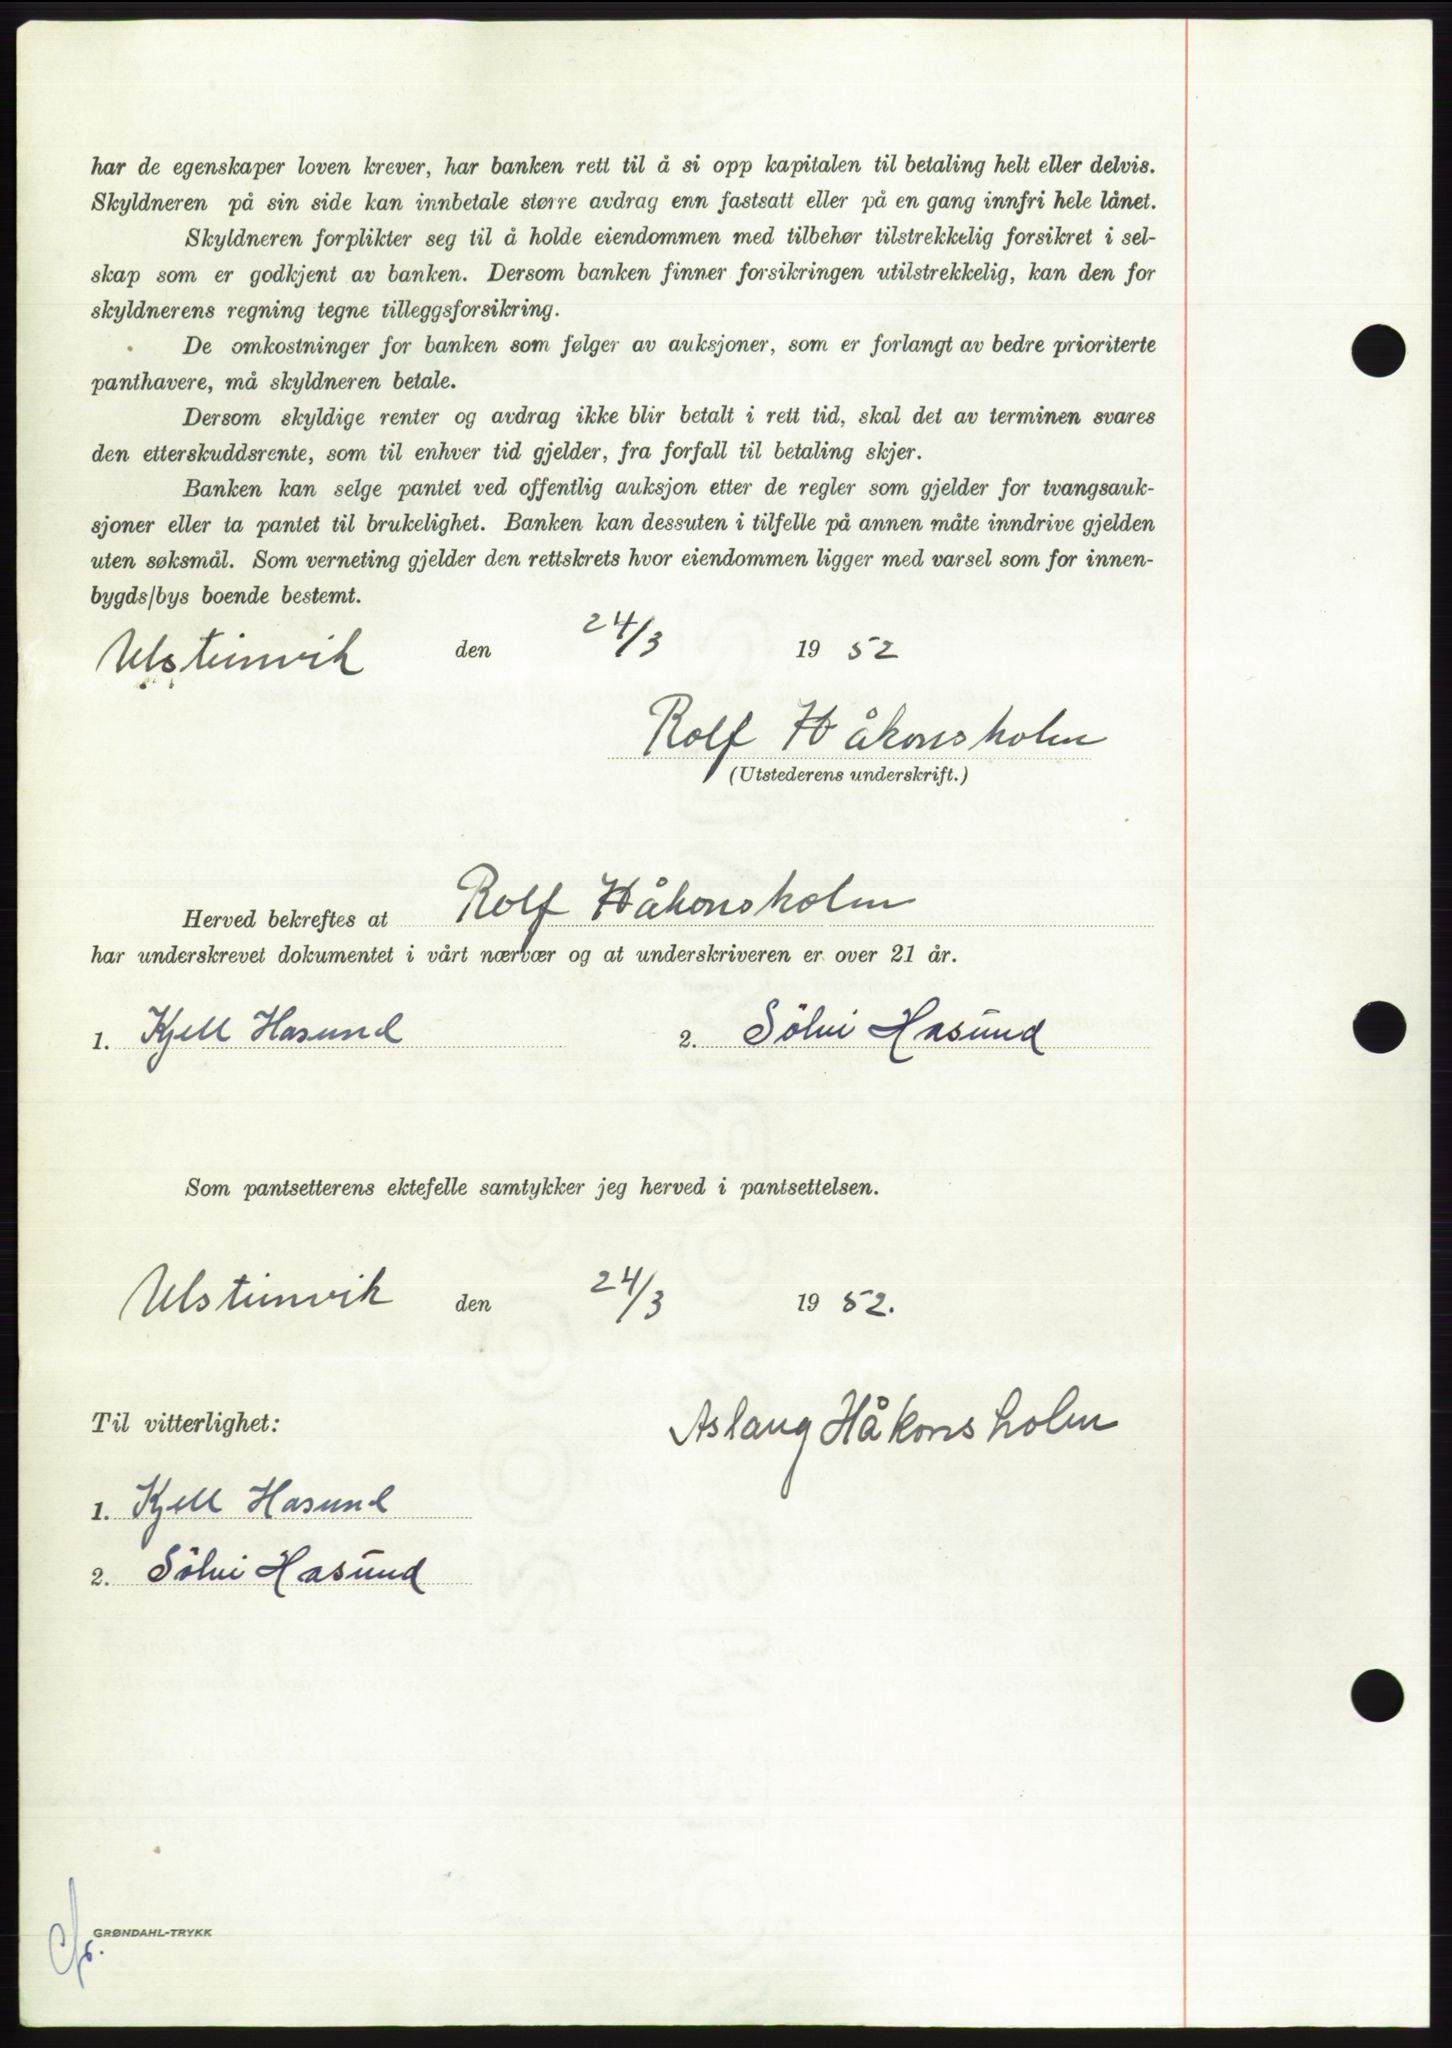 har de egenskaper loven krever, har banken rett til å si opp kapitalen til betaling helt eller delvis.
Skyldneren på sin side kan innbetale større avdrag enn fastsatt eller på en gang innfri hele lånet.
Skyldneren forplikter seg til å holde eiendommen med tilbehør tilstrekkelig forsikret i sel-
skap som er godkjent av banken. Dersom banken finner forsikringen utilstrekkelig, kan den for
skyldnerens regning tegne tilleggsforsikring.
De omkostninger for banken som følger av auksjoner, som er forlangt av bedre prioriterte
panthavere, må skyldneren betale.
Dersom skyldige renter og avdrag ikke blir betalt i rett tid, skal det av terminen svares
den etterskuddsrente, som til enhver tid gjelder, fra forfall til betaling skjer.
Banken kan selge pantet ved offentlig auksjon etter de regler som gjelder for tvangsauk-
sjoner eller ta pantet til brukelighet. Banken kan dessuten i tilfelle på annen måte inndrive gjelden
uten søksmål. Som verneting gjelder den rettskrets hvor eiendommen ligger med varsel som for innen-
bygds/bys boende bestemt.
Ulsteinvik den 24/3 19 52
Rolf Håkonsholm
(Utstederens underskrift.)
Herved bekreftes at Rolf Håkonsholm
har underskrevet dokumentet i vårt nærvær og at underskriveren er over 21 år.
1. Kjell Hasund 2. Sölvi Hasund
Som pantsetterens ektefelle samtykker jeg herved i pantsettelsen.
Ulsteinvik den 24/3 19 52.
Til vitterlighet: Aslaug Håkonsholm
1. Kjell Hasund
2. Sölvi Hasund
GRØNDAHL-TRYKK